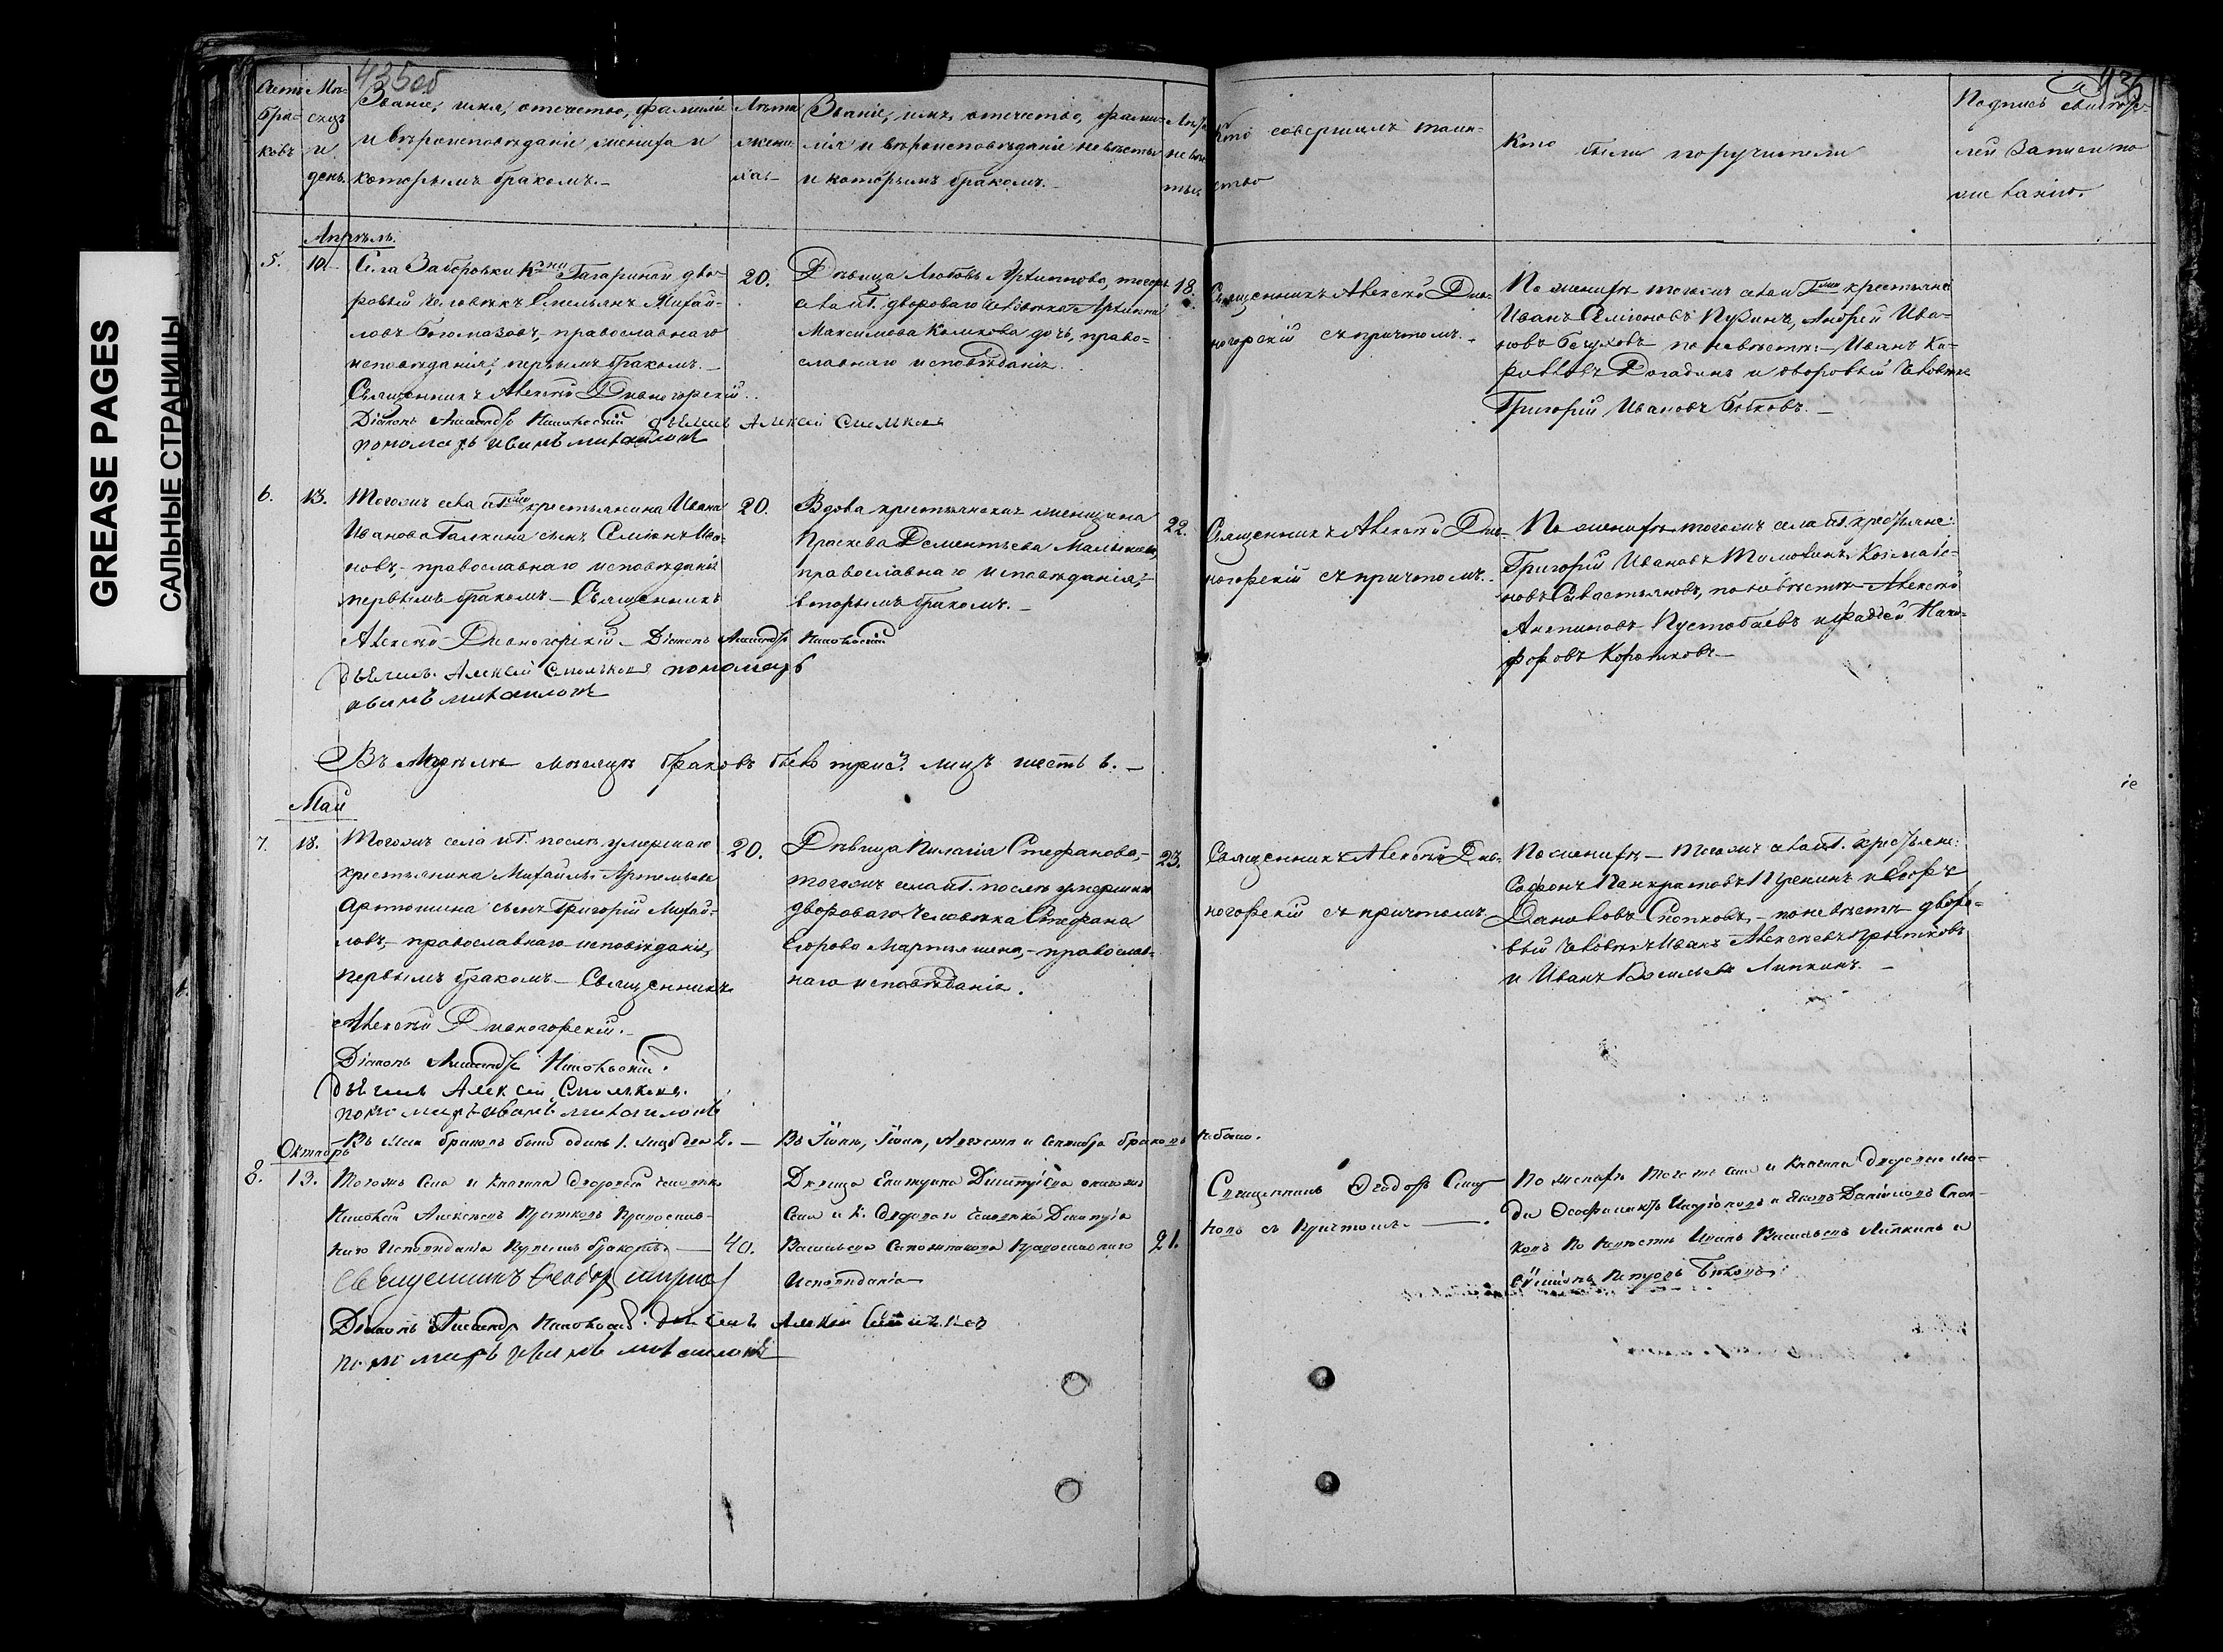 GREASE PAGES
САЛЬНЫЕ СТРАНИЦЫ
435об
Счетъ браковъ
Мѣсяцъ и день.
Званіе, имя, отечество, фамилія
и вѣроисповѣданіе жениха и
которымъ бракомъ.
Лѣта жениха
Званіе, имя, отечество, фами-
лія и вѣроисповѣданіе невѣсты
и которымъ бракомъ.
Лѣта невѣсты
Кто совершилъ таин-
ство
Кто были поручители
Подпись свидѣте-
лей записи по
желанію.
Апрѣль.
5.
10
Села Княгини Гагариной дво-
ровый человѣкъ Емельянъ Михай-
ловъ Богомазовъ, православнаго
исповѣданія, первымъ бракомъ.
Священникъ Алексѣй Дивногорскій.
Діаконъ Александръ дьячекъ Алексѣй
пономарь иванъ михаиловъ
20.
Дѣвица Любовь Архипова, тогожъ
села и Г. двороваго человѣка Архипа
Максимова Каликова дочь, право-
славнаго исповѣданія.
18.
Священникъ Алексѣй Див-
ногорскій съ причтомъ.
По женихѣ тогожъ села и Г. крестьяне
Иванъ Семіоновъ Пузинъ, Андрей Ива-
новъ по невѣстѣ: Иванъ Ки-
риловъ Догадинъ и дворовый человѣкъ
Григорій Ивановъ Быковъ.
6.
13.
Тогожъ села и Г. крестьянина Ивана
Иванова Галкина сынъ Семіонъ Ива-
новъ, православнаго исповѣданія
первымъ бракомъ. Священникъ
Алексѣй Дивногорскій Діаконъ Александръ
дьячекъ Алексѣй пономарь
иванъ михаиловъ
20.
Вдова крестьянская женщина
Прасковья Дементьева
православнаго исповѣданія,
вторымъ бракомъ.
22.
Священникъ Алексѣй Див-
ногорскій съ причтомъ.
По женихѣ тогожъ села и Г. крестьяне:
Григорій Ивановъ Козма
Савастьяновъ, по невѣстѣ Алексѣй
Антиповъ Пустобаевъ и Фаддей Ники-
форовъ Коротковъ.
Въ Апрѣлѣ мѣсяцѣ браковъ было три 3. лицъ шесть 6.
Май
7.
18.
Тогожъ села и Г. послѣ умершаго
крестьянина Михаила Артемьева
Артюшина сынъ Григорій Михай-
ловъ, православнаго исповѣданія,
первымъ бракомъ. Священникъ
Алексѣй Дивногорскій.
Діаконъ Александръ
дьячекъ Алексѣй
пономарь иванъ михаиловъ
20.
Дѣвица Пилагія Стефанова,
тогожъ села и Г. послѣ умершаго
двороваго человѣка Стефана
Егорова православ-
наго исповѣданія.
23.
Священникъ Алексѣй Див-
ногорскій съ причтомъ
По женихѣ тогожъ села и Г. крестьяне:
Софонъ Панкратовъ и
Даниловъ по невѣстѣ дворо-
вый человѣкъ Иванъ Алексѣевъ Прытковъ
и Иванъ Васильевъ Липкинъ.
Въ Маѣ браковъ былъ одинъ 1. лицъ два 2. — Въ Іюнѣ, Іюлѣ, Августѣ и Сентябрѣ браковъ не было.
Октябрь
8.
13.
Тогожъ Села и Княгини дворовый человѣкъ
Николай Алексѣевъ Прытковъ Православ-
наго Исповѣданія Первымъ бракомъ.
Священникъ Феодоръ
Діаконъ Александръ дьячекъ Алексѣй
пономарь иванъ михаиловъ
40.
Дѣвица Екатерина Димитріева онагожъ
Села и К. двороваго человѣка Димитрія
Васильева Православнаго
Исповѣданія
21.
Священникъ Ѳеодоръ
съ Причтомъ.
По женихѣ тогожъ села и Княгини дворовые лю-
ди и Яковъ Даниловъ
По невѣстѣ Иванъ Васильевъ Липкинъ и
Семіонъ Петровъ Быковъ.